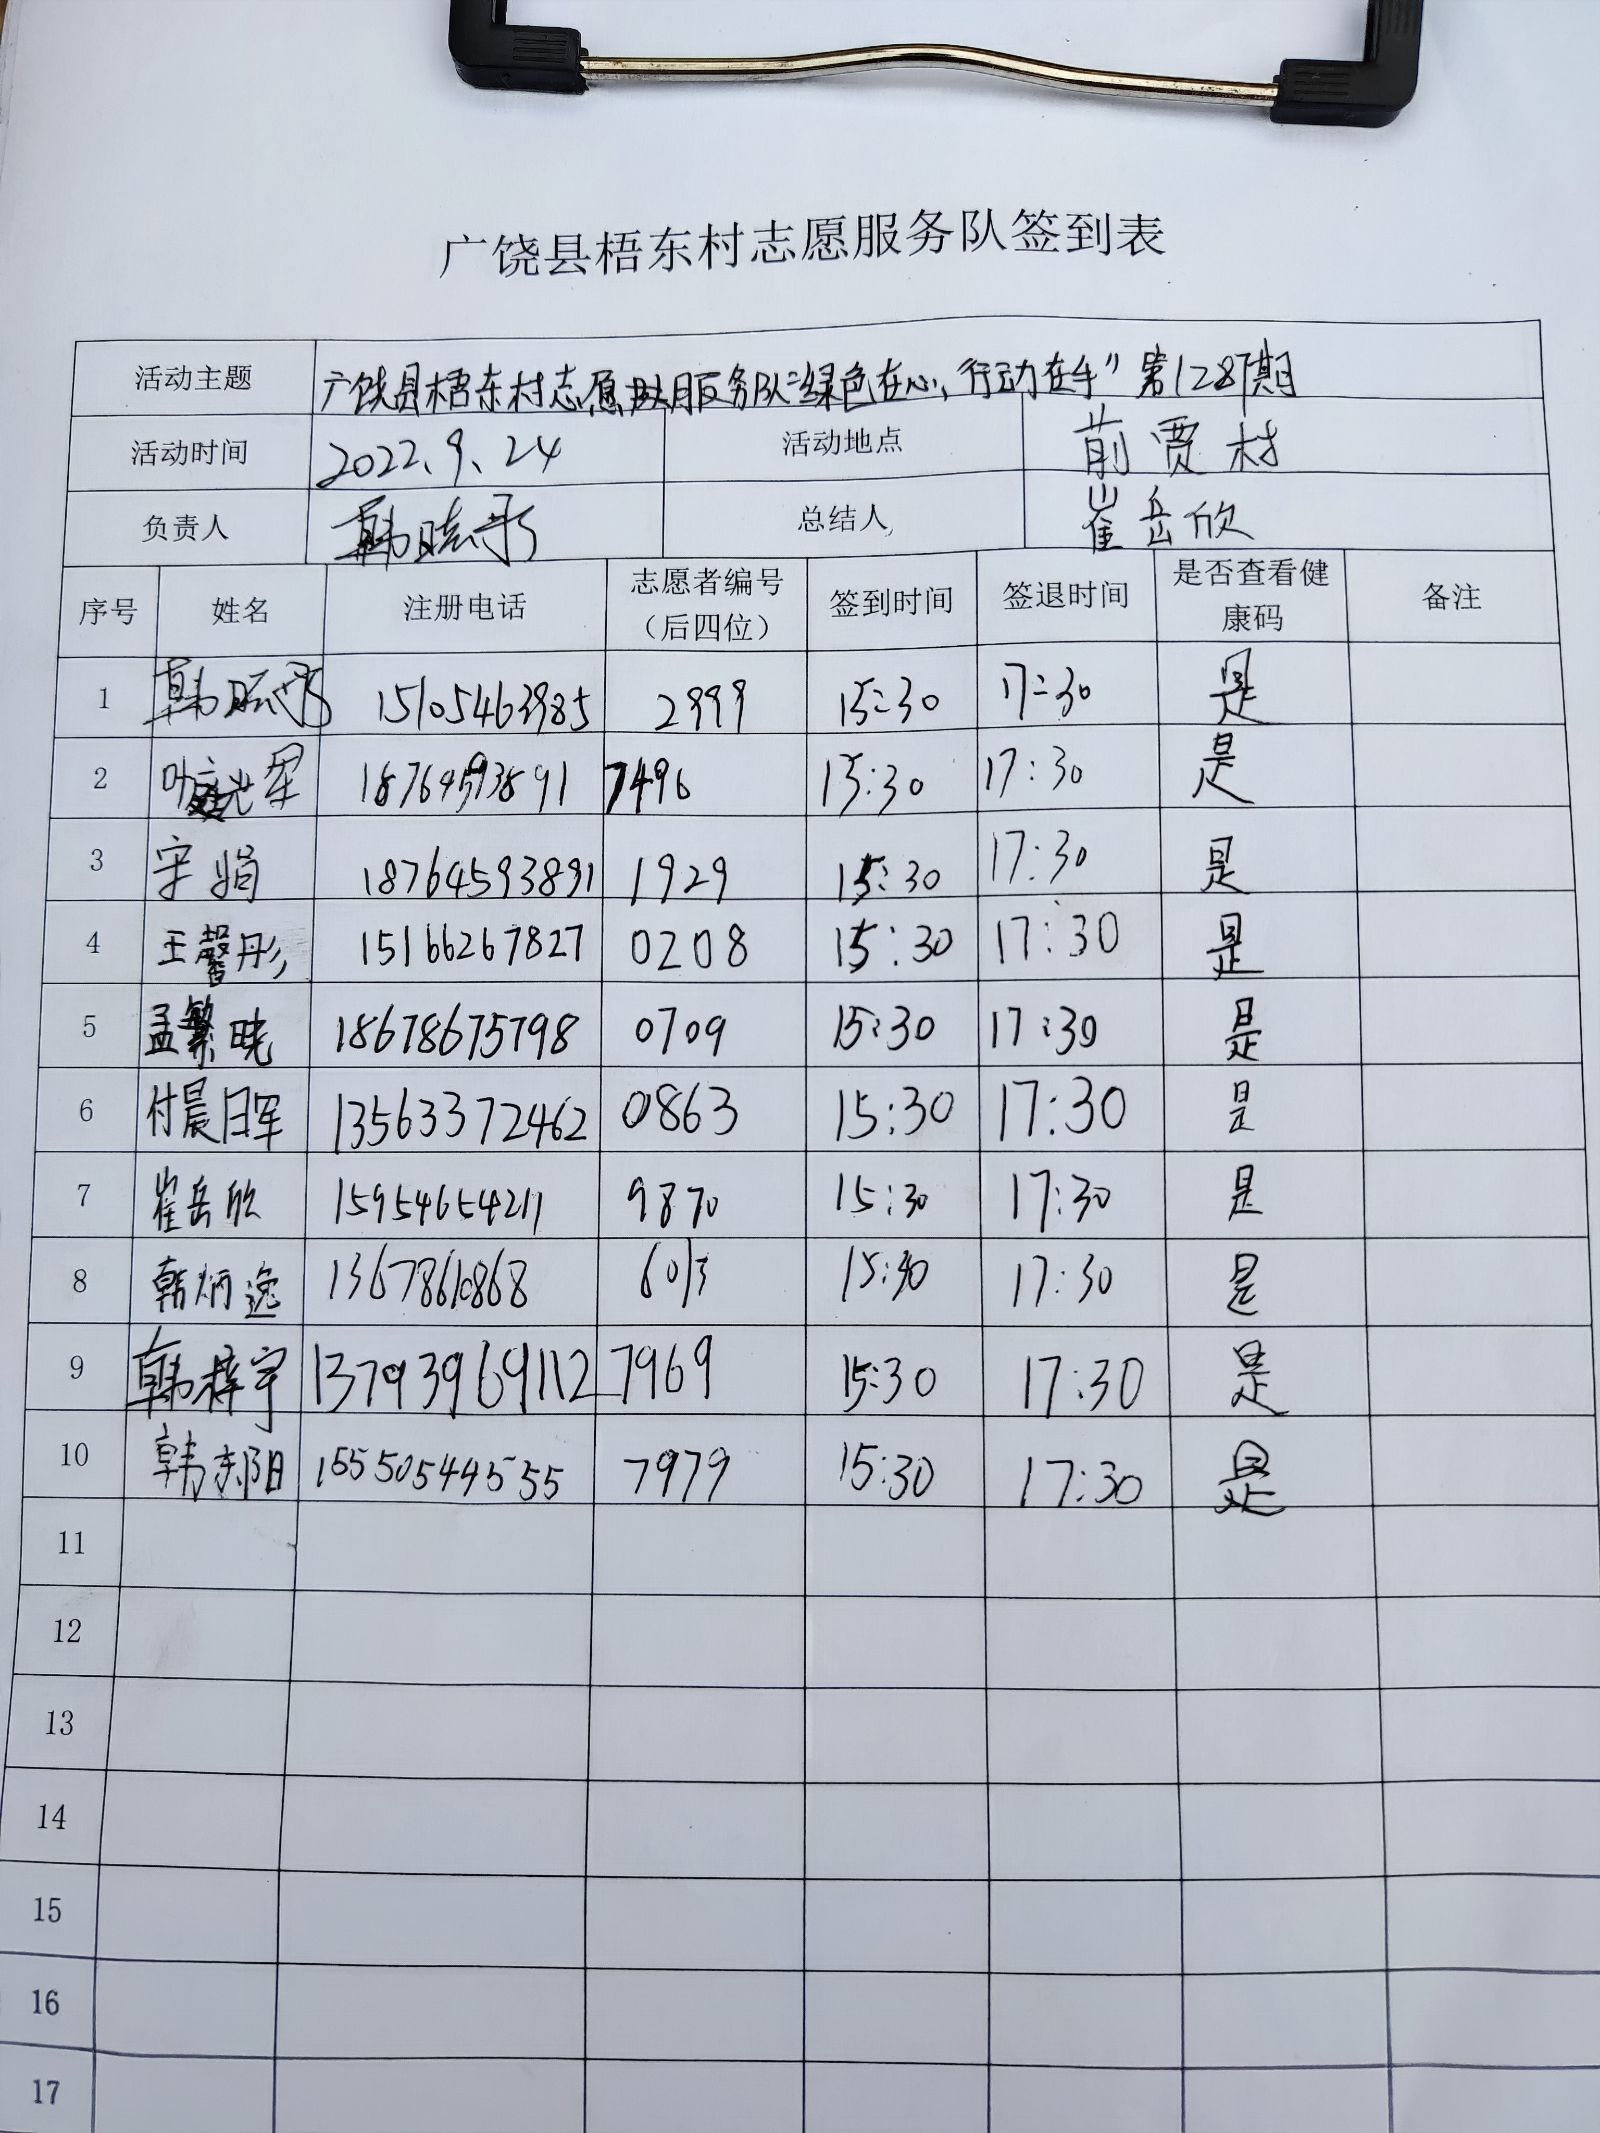 广饶县梧东村志愿服务队签到表
活动主题 广饶县梧东村志愿服务队"绿色在心,行动在手"第128期
活动时间 2022.9.24 活动地点 前贾村
负责人 韩晓彤 总结人 崔岳欣
序号 姓名 注册电话 志愿者编号（后四位） 签到时间 签退时间 是否查看健康码 备注
1 韩晓彤 15105463985 2999 15:30 17:30 是
2 18764593891 7496 15:30 17:30 是
3 宋娟 18764593891 1929 15:30 17:30 是
4 王馨彤 15166267827 0208 15:30 17:30 是
5 孟繁晓 18678675798 0709 15:30 17:30 是
6 付晨晖 13563372462 0863 15:30 17:30 是
7 崔岳欣 15954654211 9870 15:30 17:30 是
8 韩炳逸 13678610868 6013 15:30 17:30 是
9 韩梓宇 13793969112 7969 15:30 17:30 是
10 韩东阳 15550544555 7979 15:30 17:30 是
11
12
13
14
15
16
17